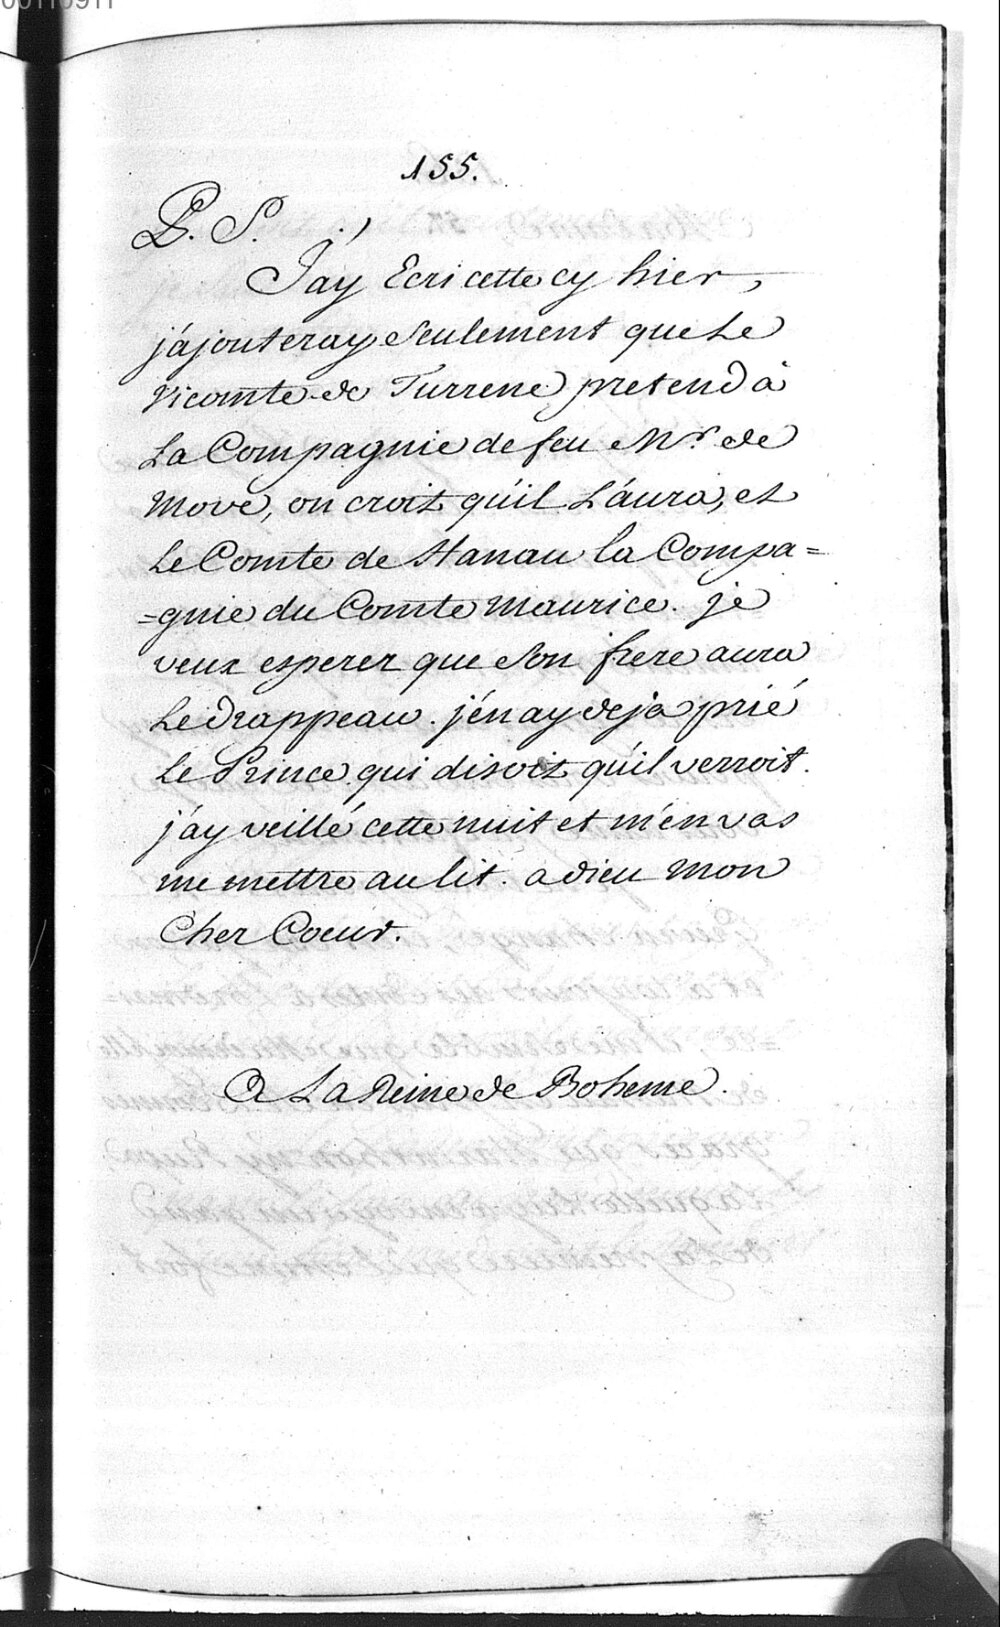 00110911
155.
P. S.
J'ay Ecri cette cy hier,
j'ajouteray seulement que Le
Vicomte de Turrene pretend à
La Compagnie de feu Mr. de
Move, on croit qu'il L'aura, et
Le Comte de Hanau la Compa=
=gnie du Comte Maurice. je
veux esperer que son frere aura
Le drappeau. j'én ay deja prié
Le Prince qui disoit qu'il verroit.
j'ay veillé cette nuit et m'en vas
me mettre au lit. a dieu mon
Cher Coeur.
A La Reine de Boheme.